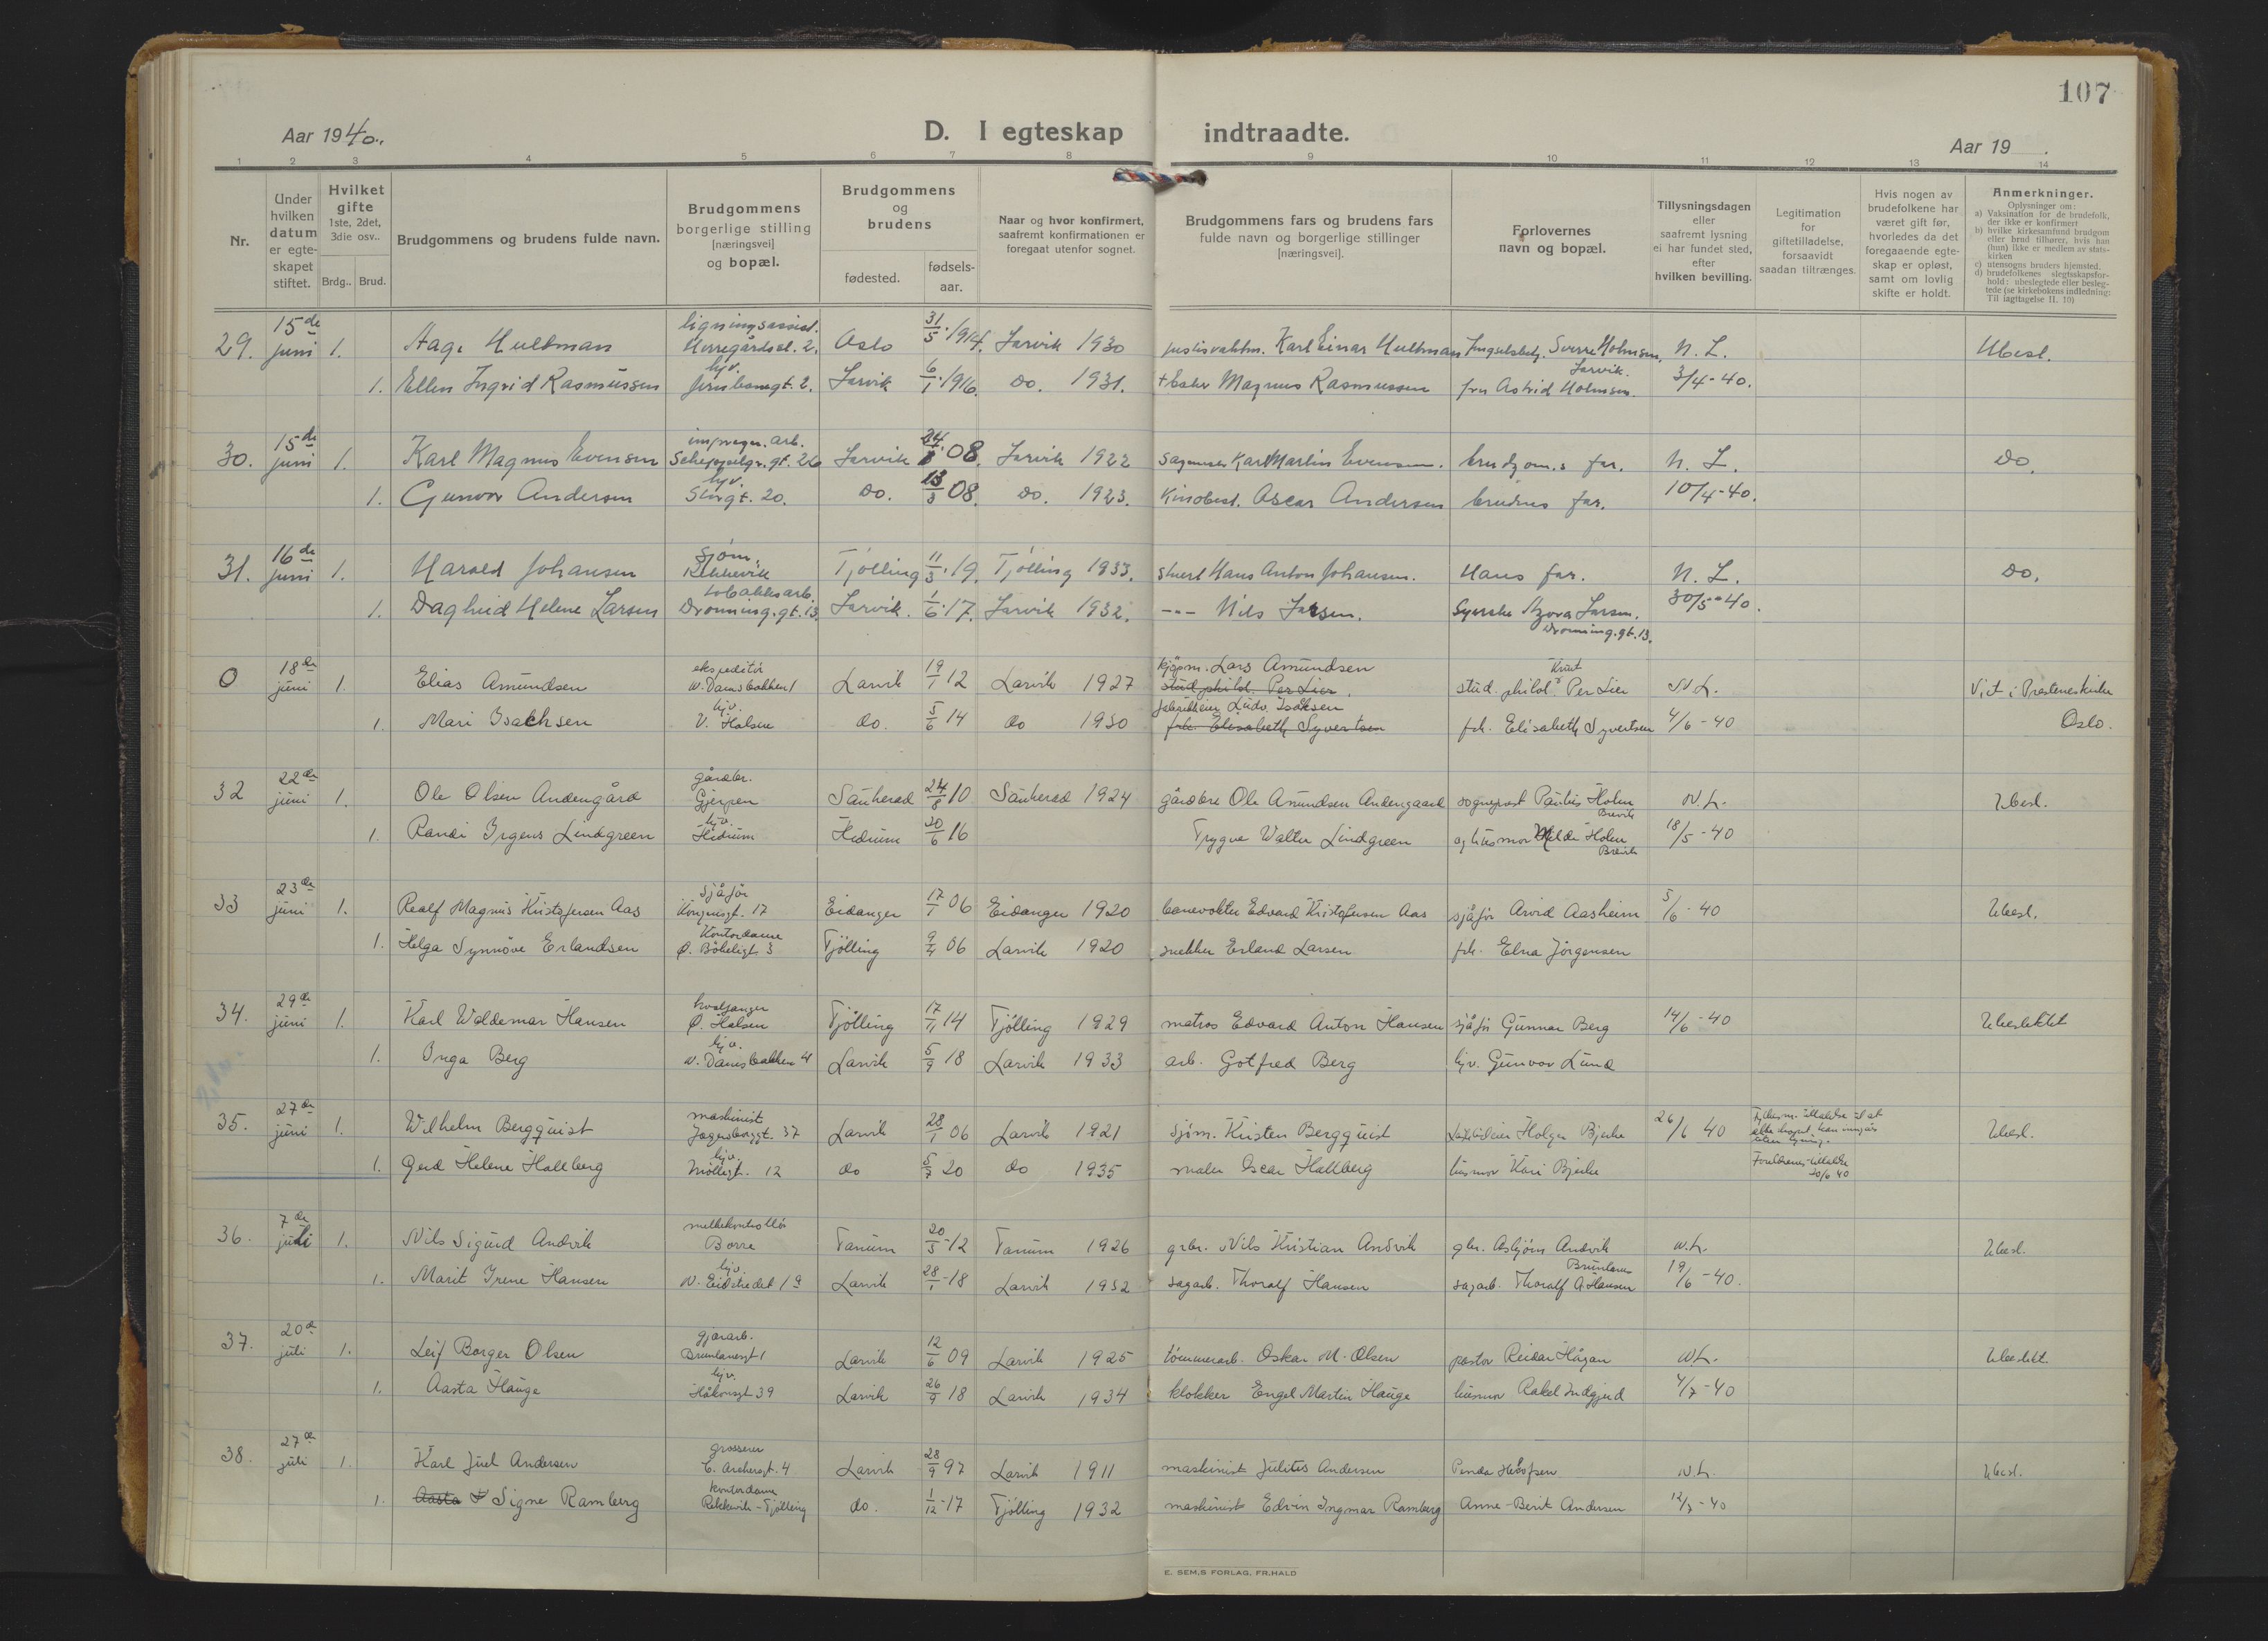 107
Aar 1940.
D. I egteskap indtraadte.
Aar 19 .
1 2 3 4 5 6 7 8 9 10 11 12 13 14
Nr.
Under hvilken datum er egteskapet stiftet.
Hvilket gifte
1ste, 2det, 3die osv..
Brdg.. Brud.
Brudgommens og brudens fulde navn.
Brudgommens borgerlige stilling [næringsvei] og bopæl.
Brudgommens og brudens
fødested. fødselsaar.
Naar og hvor konfirmert, saafremt konfirmationen er foregaat utenfor sognet.
Brudgommens fars og brudens fars fulde navn og borgerlige stillinger [næringsvei].
Forlovernes navn og bopæl.
Tillysningsdagen eller saafremt lysning ei har fundet sted, efter hvilken bevilling.
Legitimation for giftetilladelse, forsaavidt saadan tiltrænges.
Hvis nogen av brudefolkene har været gift før, hvorledes da det foregaaende egteskap er opløst, samt om lovlig skifte er holdt.
Anmerkninger.
Oplysninger om:
a) Vaksination for de brudefolk, der ikke er konfirmert
b) hvilke kirkesamfund brudgom eller brud tilhører, hvis han (hun) ikke er medlem av statskirken
c) utensogns bruders hjemsted.
d) brudefolkenes slegtsskapsforhold: ubeslegtede eller beslegtede (se kirkebokens indledning: Til iagttagelse II. 10)
29. 15de juni 1. Aage Hultman ligningsassist. Herregårdsbl. 2. Oslo 31/5 1914. Larvik 1930 Karl Einar Hultman Sverre Holmsen, Larvik. N. L. Ubesl.
1. Ellen Ingrid Rasmussen hjv. Jernbanegt. 2. Larvik 6/1 1916. do. 1931. Magnus Rasmussen fru Astrid Holmsen. 3/4-40.
30. 15de juni 1. Karl Magnus Evensen impregn. arb. 26 Larvik 08. Larvik 1922 Karl Martin Evensen. brudgom.s far. N. L. do.
1. Gunvor Andersen hjv. Storgt. 20. do. 13/3 08. do. 1923. Kinobest. Oscar Andersen brudens far. 10/4-40.
31. 16de juni 1. Harald Johansen Sjøm. Rekkevik Tjølling 11/3 19. Tjølling 1933. stuert Hans Anton Johansen. Hans far. N. L. do.
1. Daghild Helene Larsen tobakksarb. Dronning.gt. 13. Larvik. 1/6 17. Larvik 1932. -"- Nils Larsen. Syerske Larsen. Dronning.gt. 13. 30/5-40.
0 18de juni 1. Elias Amundsen ekspeditør N. Damsbakken 1 Larvik 19/1 12 Larvik 1927 kjøpm. Lars Amundsen stud. philol. Per Lier. stud. philol. Per Lier N. L. Viet i Presteneskirke
1. Mari Isachsen hjv. V. Halsen do. 5/6 14 do 1930 fabrikkeier Ludv. Isaksen frk. Elisabeth Syvertsen frk. Elisabeth Syvertsen 4/6-40 Oslo.
32 22de juni 1. Ole Olsen Andengård gårdbr. Gjerpen Sauherad 24/8 10 Sauherad 1924 gårdbr. Ole Amundsen Andengaard sogneprest Paulus Holm Brevik N. L. Ubesl.
1. Randi Irgens Lindgreen hjv. Hedrum Hedrum 20/6 16 Trygve Walter Lindgreen og husmor Milda Holm Brevik 18/5-40
33 23de juni 1. Realf Magnus Kristofersen Aas sjåfør Kongensgt. 17 Eidanger 17/1 06 Eidanger 1920 banevokter Edvard Kristofersen Aas sjåfør Arvid Aasheim 5/6-40 Ubesl.
1. Helga Synnøve Erlandsen Kontordame Ø. Bøkeligt 3 Tjølling 9/4 06 Larvik 1920 snekker Erland Larsen frk. Elna Jørgensen
34. 29de juni 1. Karl Waldemar Hansen hvalfanger Ø. Halsen Tjølling 17/11 14 Tjølling 1929 matros Edvard Anton Hansen sjåfør Gunnar Berg 14/6-40 Ubeslektet
1. Inga Berg hjv. N. Damsbakken 4 Larvik 5/9 18 Larvik 1933 arb. Gotfred Berg hjv. Gunvor Lund
35. 27de juni 1. Wilhelm Bergquist maskinist Jegersborggt. 37 Larvik 28/1 06 Larvik 1921 sjøm. Kristen Bergquist Holger Bjerke 26/6 40 Ubesl.
1. Gerd Helene Hallberg hjv. Møllegt. 12 do 5/7 20 do 1935 maler Oscar Hallberg husmor Kari Bjerke Foreldrenes tillatelse 20/6 40
36. 7de juli 1. Nils Sigurd Andvik melkekontrollør Borre Tanum 20/5-12 Tanum 1926 grbr. Nils Kristian Andvik gbr. Asbjørn Andvik Brunlanes N. L. Ubesl.
1. Marit Irene Hansen hjv. N. Eidstredet 19 Larvik 28/1-18 Larvik 1932 sagarb. Thoralf Hansen sagarb. Thoralf A. Hansen 19/6-40.
37. 20de juli 1. Leif Borger Olsen gjørarb. Brunlanesgt 1 Larvik 12/6 09 Larvik 1925 tømmerarb. Oskar M. Olsen pastor Reidar Hågan N. L. Ubeslekt.
1. Aasta Hauge hjv. Håkonsgt 39 Larvik 26/9 18 Larvik 1934 klokker Engel Martin Hauge husmor Rakel Indgjerd 4/7-40
38. 27de juli 1. Karl Juel Andersen grosserer C. Archersgt. 4 Larvik 28/9 97 Larvik 1911 maskinist Julius Andersen N. L. Ubesl.
1. Aasta Signe Ramberg kontordame Rekkevik-Tjølling do. 1/12-17 Tjølling 1932 maskinist Edvin Ingmar Ramberg Anne-Berit Andersen 12/7-40
E. SEM,S FORLAG, FR.HALD